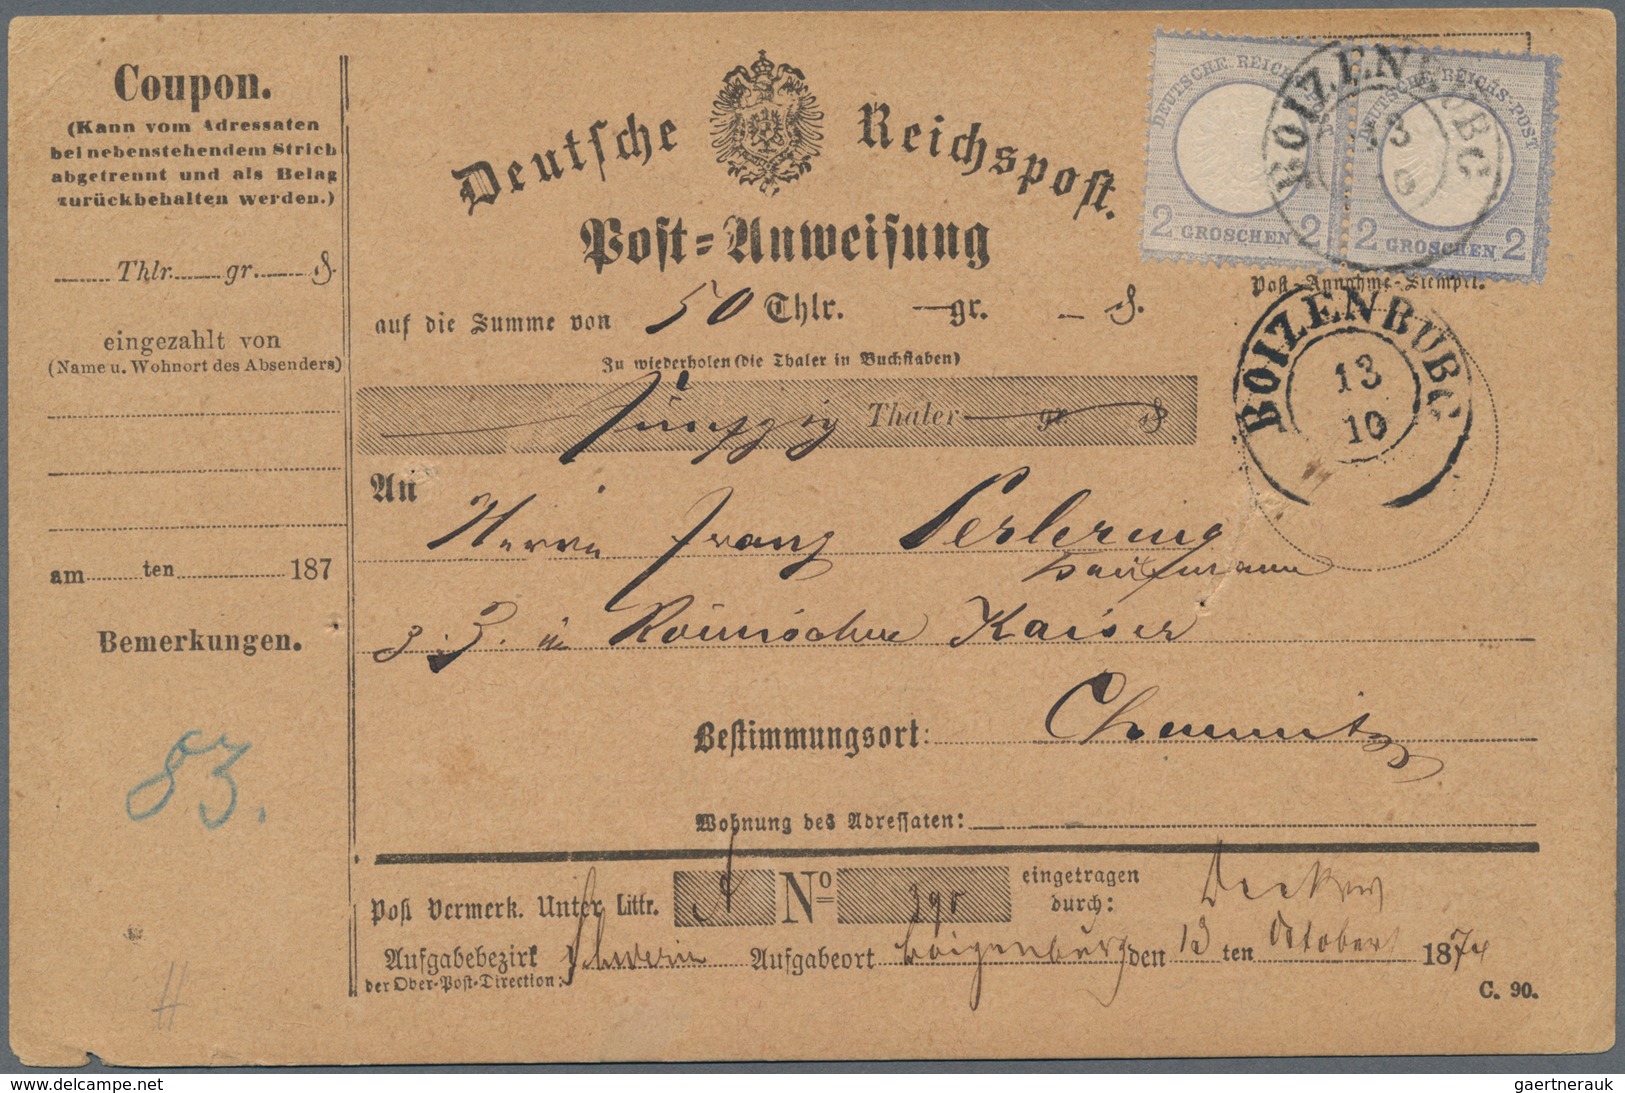 Coupon.
(Kann vom Adressaten
bei nebenstehendem Strich
abgetrennt und als Belag
zurückbehalten werden.)
Thlr. gr. ₰
eingezahlt von
(Name u. Wohnort des Absenders)
am ten 187
Bemerkungen.
83.
Deutsche Reichspost.
Post-Anweisung
auf die Summe von 50 Thlr. — gr. — ₰.
Zu wiederholen (die Thaler in Buchstaben)
fünfzig Thaler — gr. ₰
DEUTSCHE REICHS-POST
2 GROSCHEN 2
DEUTSCHE REICHS-POST
2 GROSCHEN 2
BOIZENBURG
13
10
Post-Annahme-Stempel.
BOIZENBURG
13
10
An
Herrn Franz
Kaufmann
z. Z. in Römischer Kaiser
Bestimmungsort: Chemnitz
Wohnung des Adressaten:
Post Vermerk. Unter Littr. A No 390 eingetragen
durch:
Aufgabebezirk Schwerin Aufgabeort Boizenburg den 13 ten October 1874
der Ober-Post-Direction:
C. 90.
delcampe.net
gaertnerauk